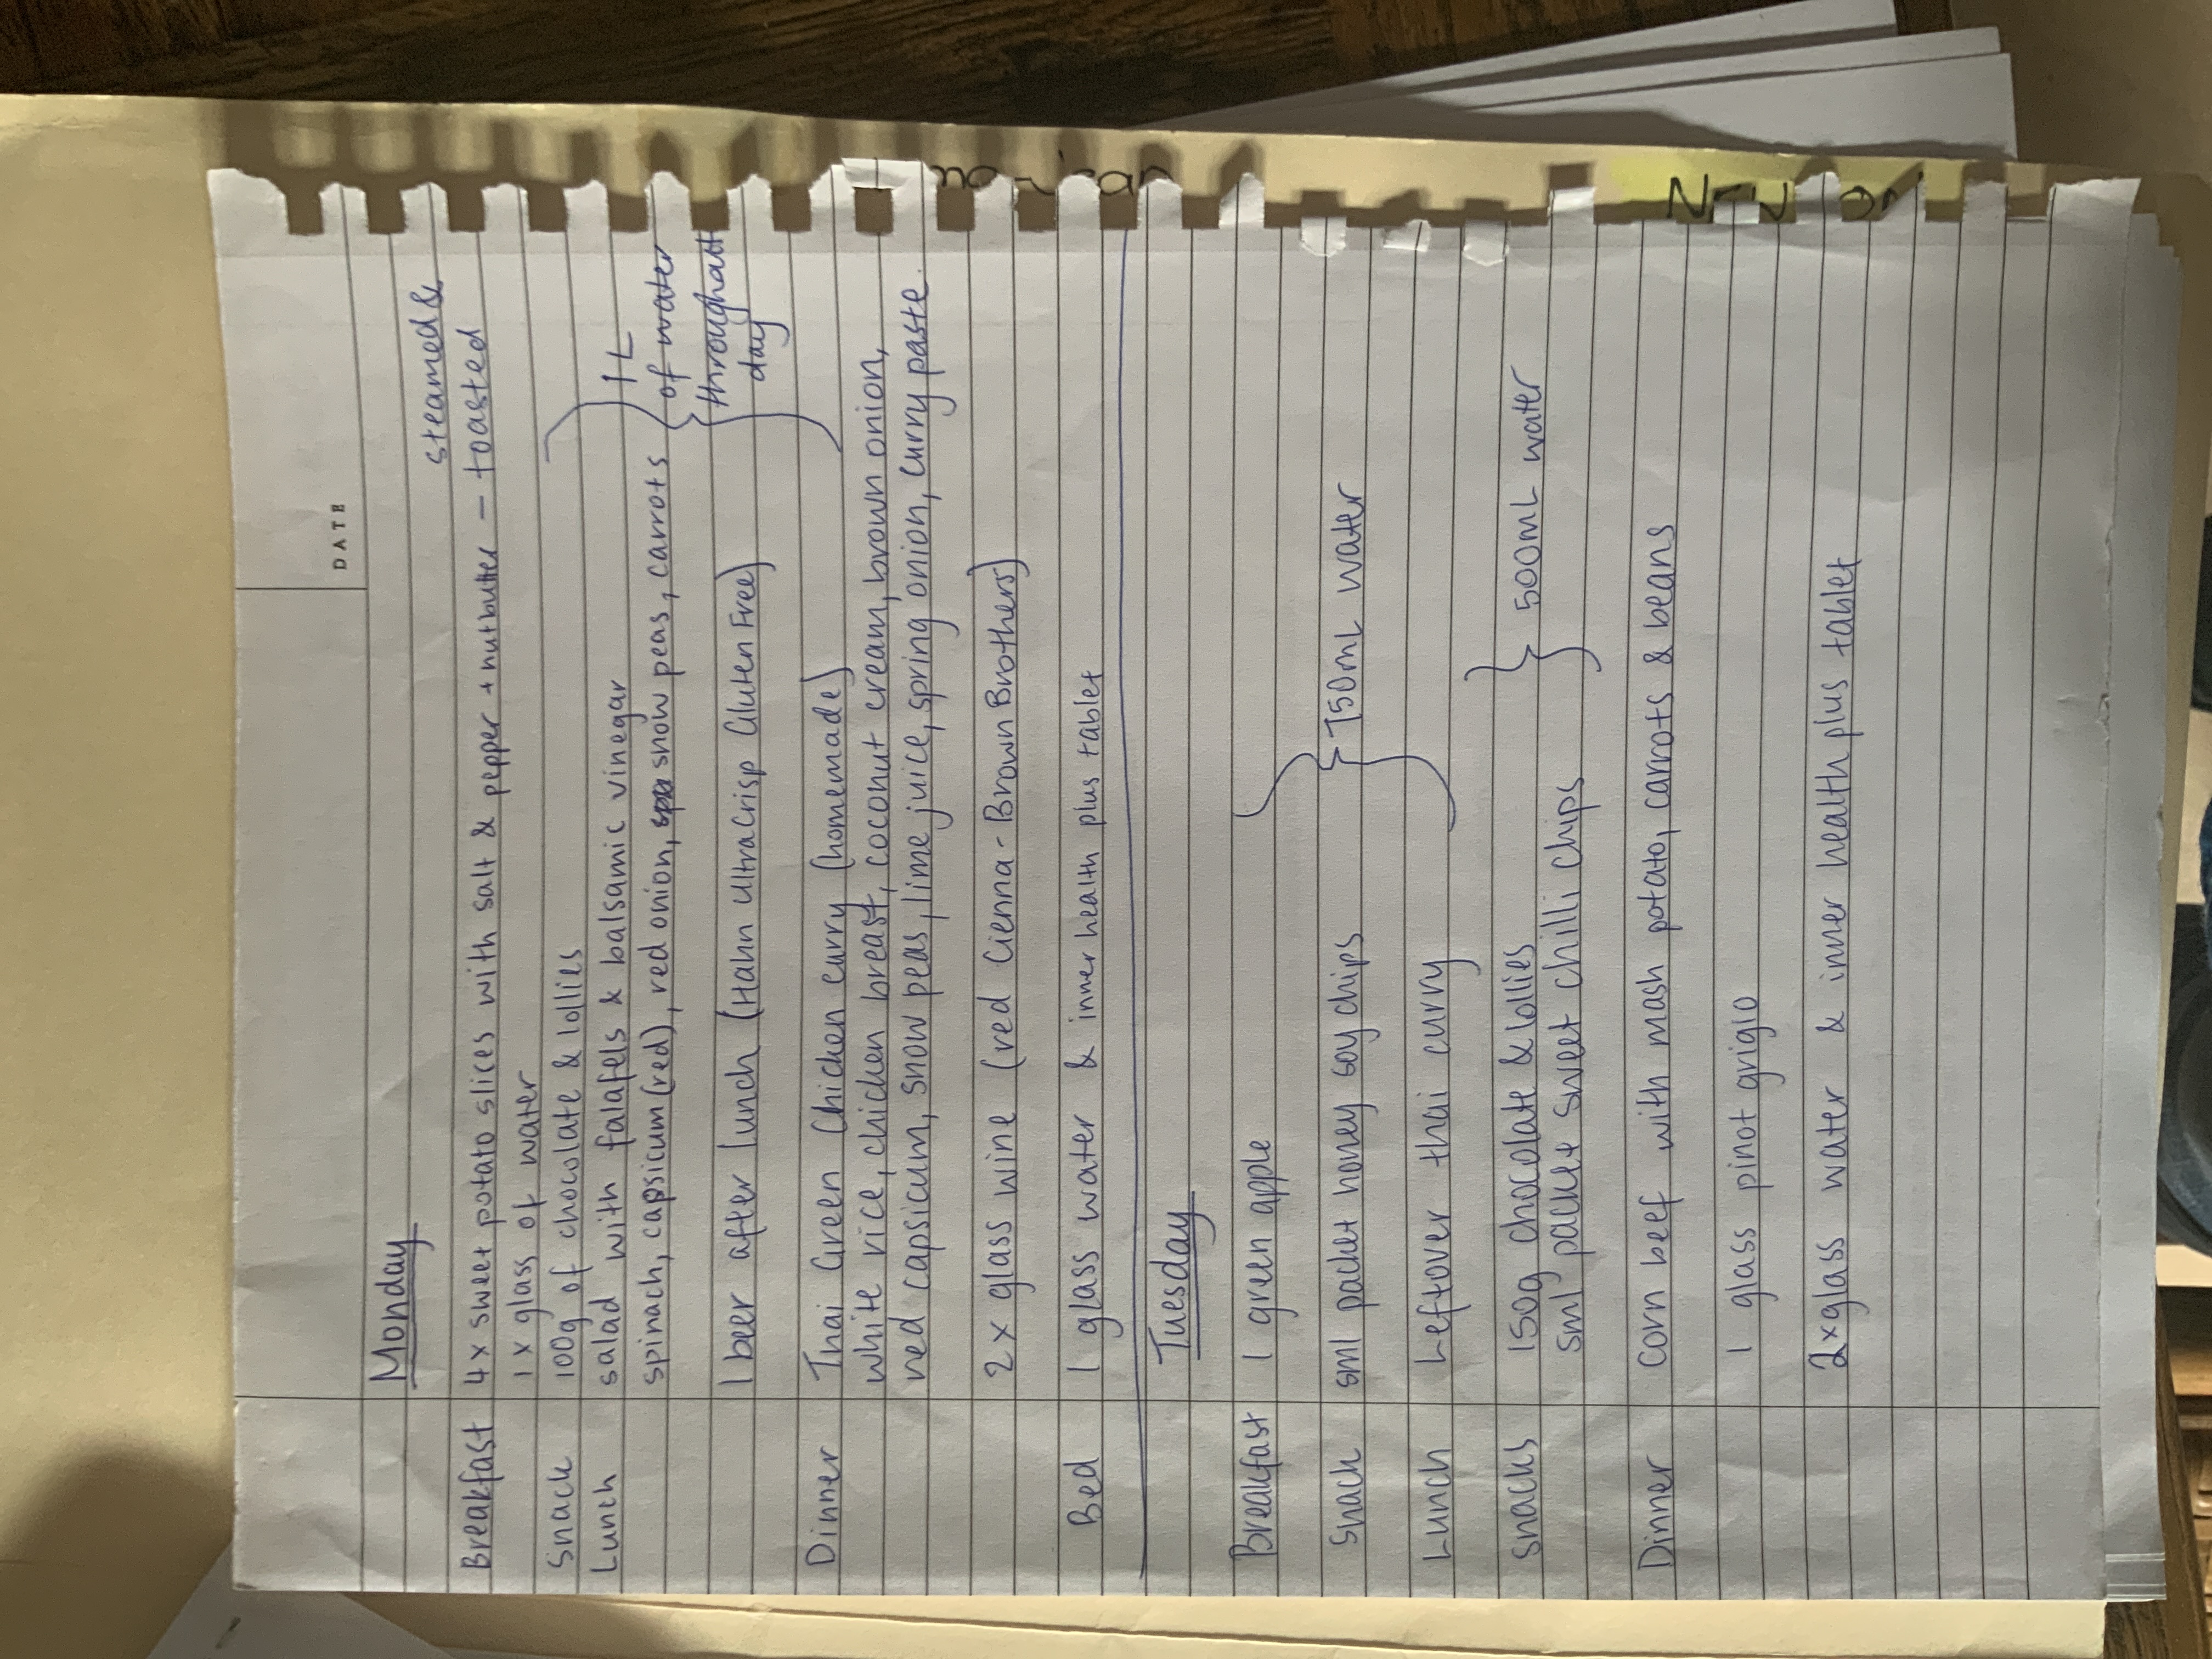 DATE
Monday
steamed &
Breakfast 4 x sweet potato slices with salt & pepper + nutbutter - toasted
1 x glass of water
Snack 100g of chocolate & lollies
Lunch salad with falafels & balsamic vinegar
spinach, capsicum (red), red onion, snow peas, carrots
1L
of water
throughout
day
1 beer after lunch (Hahn Ultra Crisp Gluten Free)
Dinner Thai Green Chicken curry (homemade)
white rice, chicken breast, coconut cream, brown onion,
red capsicum, snow peas, lime juice, spring onion, curry paste.
2 x glass wine (red Cienna - Brown Brothers)
Bed 1 glass water & inner health plus tablet
Tuesday
Breakfast 1 green apple
Snack sml packet honey soy chips
750mL water
Lunch Leftover thai curry
Snacks 150g chocolate & lollies
sml packet sweet chilli chips
500mL water
Dinner Corn beef with mash potato, carrots & beans
1 glass pinot grigio
2x glass water & inner health plus tablet